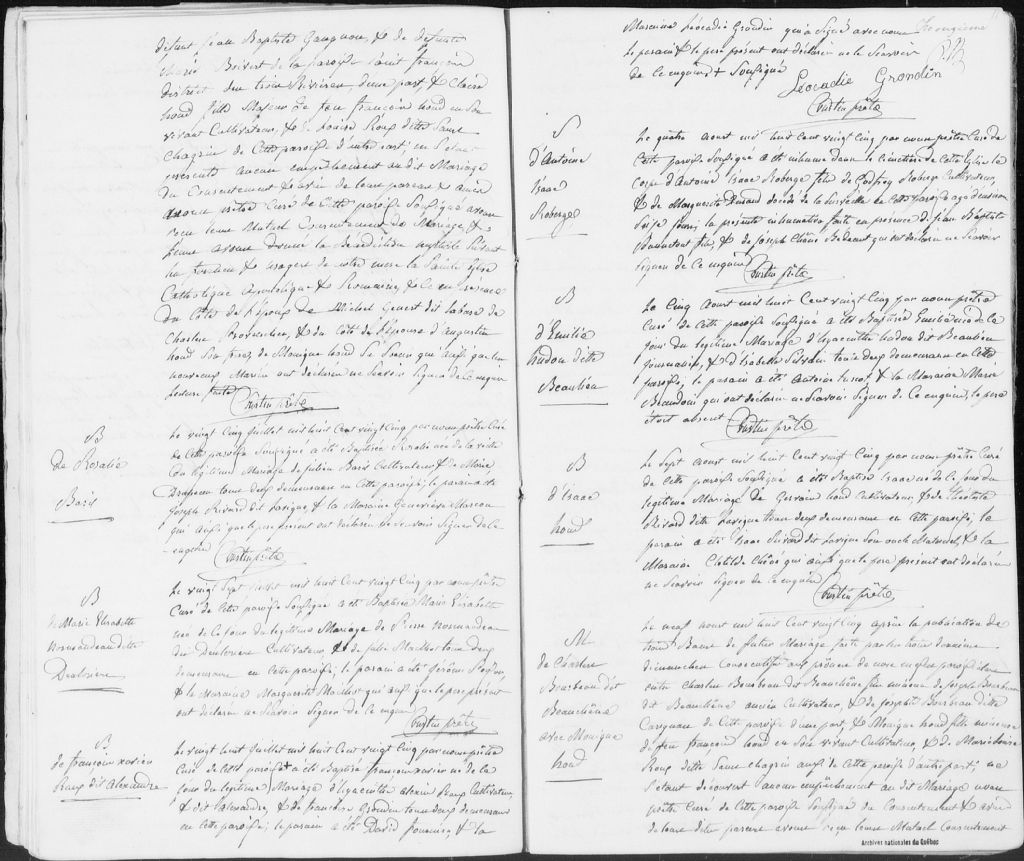 défunt jean Baptiste Gangnon, & de défunte
Marie Boivert de la paroisse saint françois
district des trois Rivières d'une part & Claire
houd fille Majeur de feu françois houd en son
vivant Cultivateur, & de Louise Roux ditte Sans
Chagrin de Cette paroisse d'autre part; ne S'étant
présenté aucun empêchement au dit Mariage
du Consentement & avis de leurs parens & amis
nous prêtre Curé de Cette paroisse Soussigné avons
reçu leurs Mutuel Consentement de Mariage, &
leurs avons donné la Bénédiction nuptiale Suivant
les & usages de notre mère la Sainte Eglise
Catholique Apostolique & Romaine, & ce en présence
du Côté de l'époux de Michel Genest dit labarre de
Charles Provencher, & du Côté de l'épouse d'augustin
houd Son frère, de Monique houd Sa Soeur qui aussi que les
nouveaux Mariés ont déclarés ne Scavoir Signer de ce enquis
lecture faite
Courtin prêtre
B
de Rosalie
Baril
Le vingt Cinq juillet mil huit Cent vingt Cinq par nous prêtre Curé
de Cette paroisse Soussigné a été Baptisée Rosalie née de la veille
du légitime Mariage de julien Baril Cultivateur & de Marie
tous deux demeurans en Cette paroisse; le parain a été
Joseph Rivard dit Lavigne, & la Maraine Geneviève
qui aussi que le père présent ont déclarés ne Scavoir Signer de Ce
enquis
Courtin prêtre
B
de Marie Elisabette
Normandeau ditte
Deslorier
Le vingt Sept juillet mil huit Cent vingt Cinq par nous prêtre
Curé de Cette paroisse Soussigné a été Baptisée Marie Elisabette
née de Ce jour du légitime Mariage de Pierre Normandeau
dit Deslorier Cultivateur & de julie Mailhot tous deux
demeurans en Cette paroisse; le parain a été jérôme
& la Maraine Marguerite Mailhot qui aussi que le père présent
ont déclarés ne Scavoir Signer de Ce enquis
Courtin prêtre
B
de françois xavier
Roux dit alexandre
Le vingt huit juillet mil huit Cent vingt Cinq par nous prêtre
Curé de Cette paroisse a été Baptisé françois xavier né de Ce
jour du légitime Mariage d'hyacinthe alexis Roux Cultivateur
& dit alexandre, & de françoise Grondin tous deux demeurans
en Cette paroisse; le parain a été David & la
Maraine Léocadie Grondin qui a Signé avec nous
le parain & le père présent ont déclarés ne le Scavoir
de Ce enquis & Soussigné
Léocadie Grondin
Courtin prêtre
S
d'Antoine
Isaac
Roberge
Le quatre aoust mil huit Cent vingt Cinq par nous prêtre Curé de
Cette paroisse Soussigné a été inhumé dans le Cimetière de Cette Eglise le
Corps d'Antoine Isaac Roberge fils de Godfrey Roberge Cultivateur,
& de Marguerite décédé de la Surveille en Cette paroisse agé d'environ
Seize jours; la présente inhumation faite en présence de jean Baptiste
fils, & de joseph Chêne Bedeaut qui ont déclarés ne Scavoir
Signer de Ce enquis
Courtin prêtre
B
d'Emilie
hudon ditte
Beaulieu
Le Cinq aoust mil huit Cent vingt Cinq par nous prêtre
Curé de Cette paroisse Soussigné a été Baptisée Emilie née de Ce
jour du légitime Mariage d'hyacinthe hudon dit Beaulieu
journalier, & d'Isabelle tous deux demeurans en Cette
paroisse, le parain a été Antoine & la Maraine Marie
Beaudoin qui ont déclarés ne Scavoir Signer de Ce enquis, le père
étoit absent
Courtin prêtre
B
d'Isaac
houd
Le Sept aoust mil huit Cent vingt Cinq par nous prêtre Curé
de Cette paroisse Soussigné a été Baptisé Isaac né de Ce jour du
légitime Mariage de Gervais houd Cultivateur & de
Rivard ditte Lavigne tous deux demeurans en Cette paroisse; le
parain a été Isaac Rivard dit Lavigne Son oncle Maternel, & la
Maraine Clotilde Chêne qui aussi que le père présent ont déclarés
ne Scavoir Signer de Ce enquis
Courtin prêtre
M
de Charles
Bourbeau dit
Beauchêne
avec Monique
houd
Le neuf aoust mil huit Cent vingt Cinq après la publication de
trois Bans de futur Mariage faite par les trois
dimanches Consécutifs aux prônes de notre église paroissiale
entre Charles Bourbeau dit Beauchêne fils mineur de joseph Bourbeau
dit Beauchêne ancien Cultivateur, & de josephte Bourbeau ditte
Carignan de Cette paroisse d'une part, & Monique houd fille mineure
de feu françois houd en Son vivant Cultivateur, & de Marie Louise
Roux ditte Sans chagrin aussi de Cette paroisse d'autre part, ne
S'étant découvert aucun empêchement au dit Mariage nous
prêtre Curé de Cette paroisse Soussigné du Consentement & avis
de leurs dittes parens avons reçu leurs Mutuel Consentement
Archives nationales du Québec